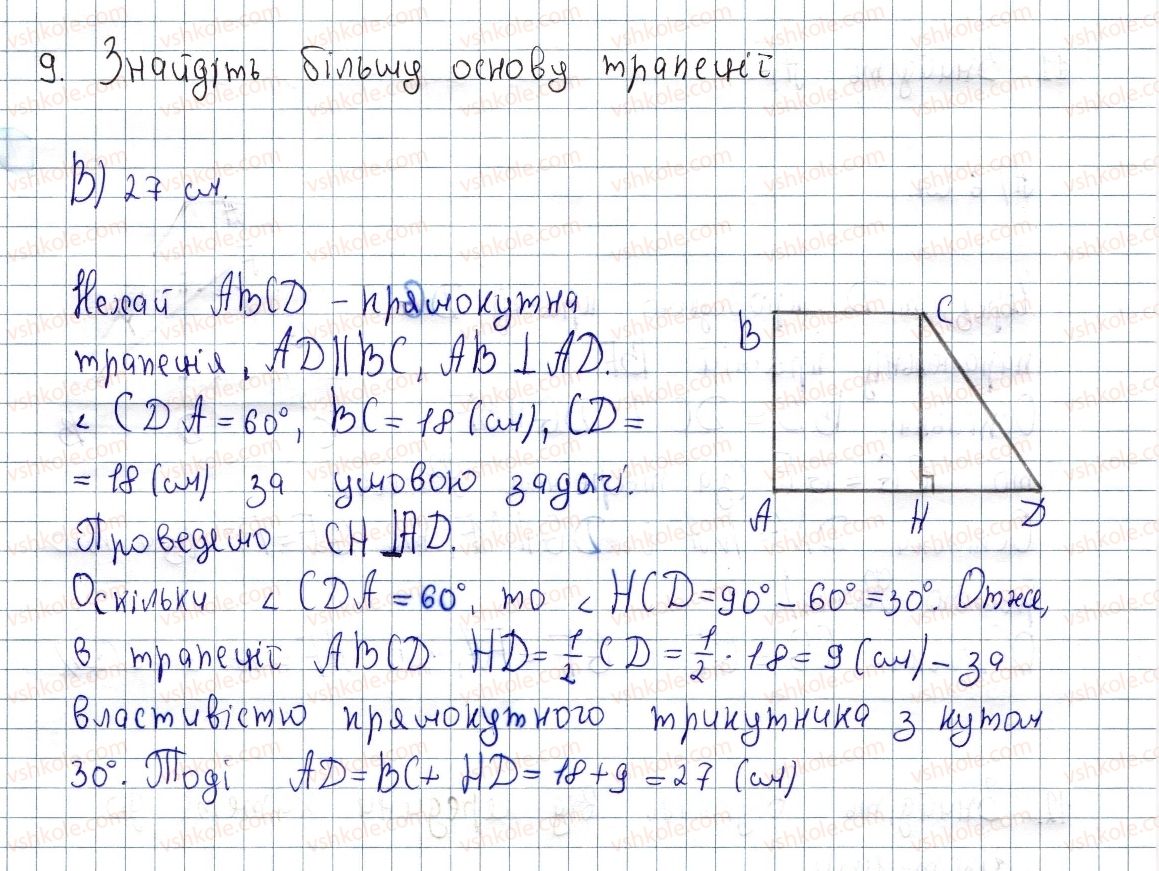 9. Знайдіть більшу основу трапеції
В) 27 см.
Нехай ABCD – прямокутна
трапеція, AD||BC, AB⊥AD.
∠CDA=60°, BC=18 (см), CD=
=18 (см) за умовою задачі.
Проведемо CH⊥AD.
Оскільки ∠CDA=60°, то ∠HCD=90°–60°=30°. Отже,
в трапеції ABCD HD=1/2 CD=1/2·18=9 (см) – за
властивістю прямокутного трикутника з кутом
30°. Тоді AD=BC+HD=18+9=27 (см)
B C
A H D
vshkole.com